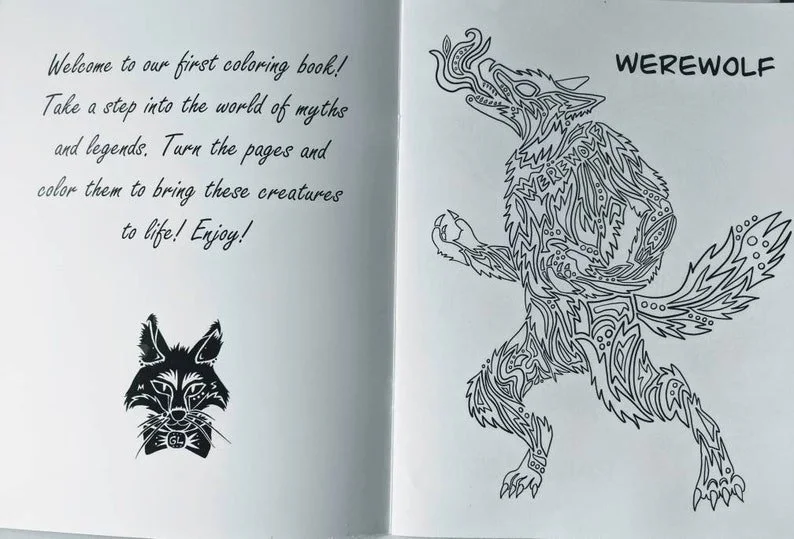 Welcome to our first coloring book!
Take a step into the world of myths
and legends. Turn the pages and
color them to bring these creatures
to life! Enjoy!
M S
GL
WEREWOLF
WEREWOLF